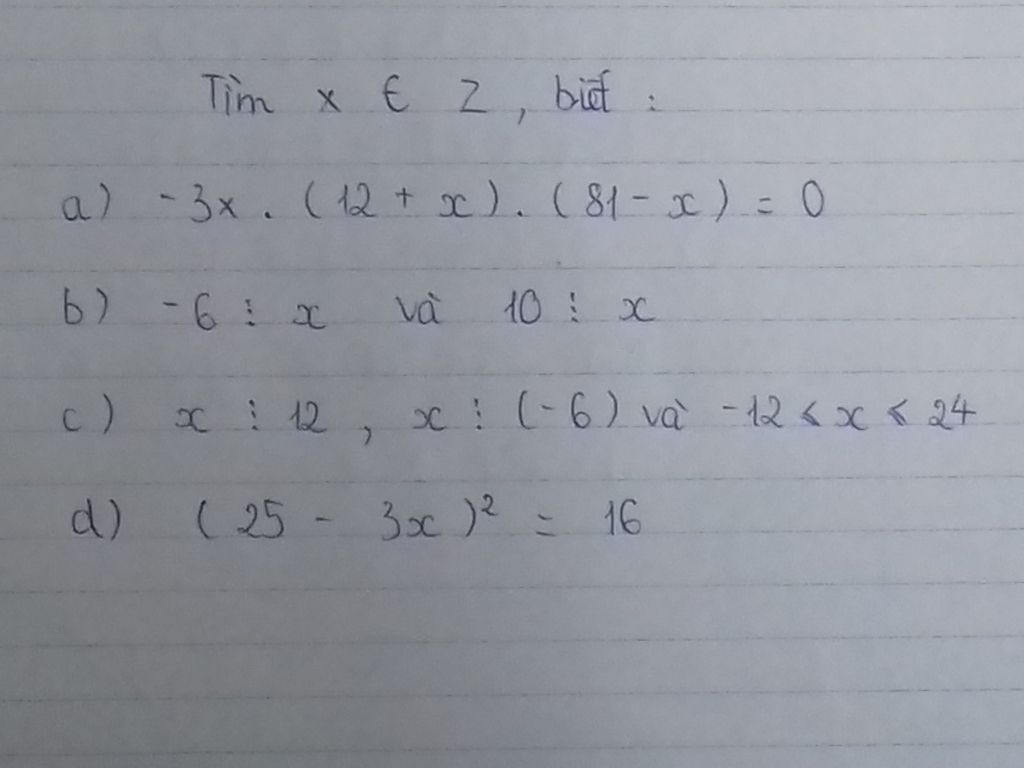 Tìm x ∈ Z, biết :
a) -3x . (12 + x) . (81 - x) = 0
b) -6 ⋮ x và 10 ⋮ x
c) x ⋮ 12 , x ⋮ (-6) và -12 ≤ x ≤ 24
d) (25 - 3x)² = 16